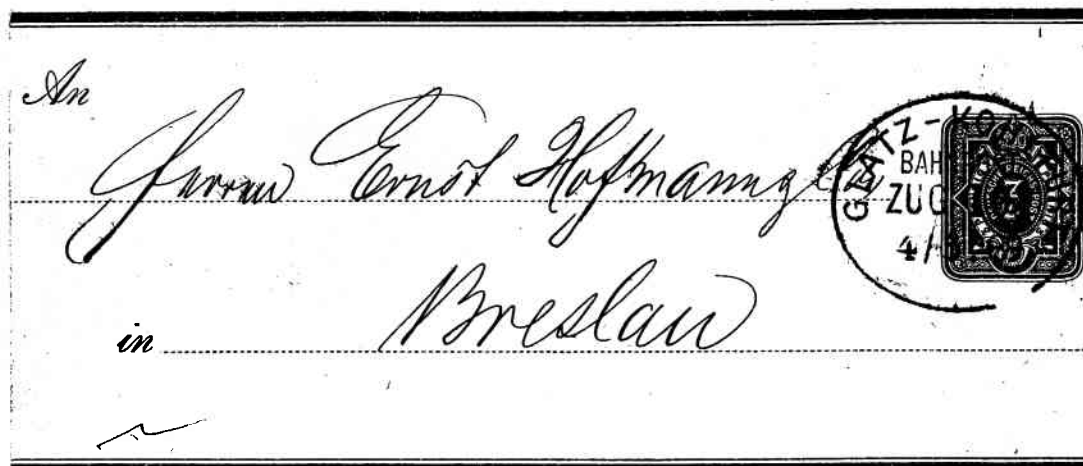 An
Herrn Ernst Hofmann
GLATZ-KO
BAH
ZUG
3
4/
in Breslau